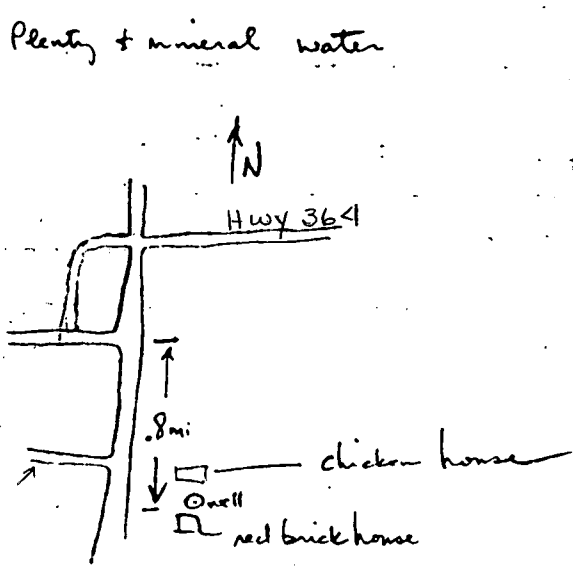 Plenty + mineral water
N
Hwy 364
.8mi
chicken house
well
red brick house